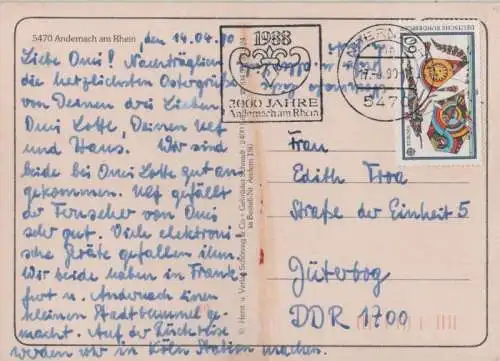 5470 Andernach am Rhein
, den 14.04.90
Liebe Omi! Nachträglich
die herzlichsten Ostergrüße
von Deinen drei Lieben,
Omi Lotte, Deinen Ulf
und Hans. Wir sind
beide bei Omi Lotte gut an-
gekommen. Ulf gefällt
der Fernseher von Omi
sehr gut. Viele elektroni-
sche Geräte gefallen ihm.
Wir beide haben in Frank-
furt u. Andernach einen
kleinen Stadtbummel ge-
macht. Auf der Rückreise
werden wir in Köln Station machen.
© Herst. u. Verlag Schöning & Co + Gebrüder Schmidt
Bestell-Nr.
1988
2000 JAHRE
Andernach am Rhein
547
DEUTSCHE BUNDESPOST
60
Frau
Edith Troa
Straße der Einheit 5
Jüterbog
DDR 1700